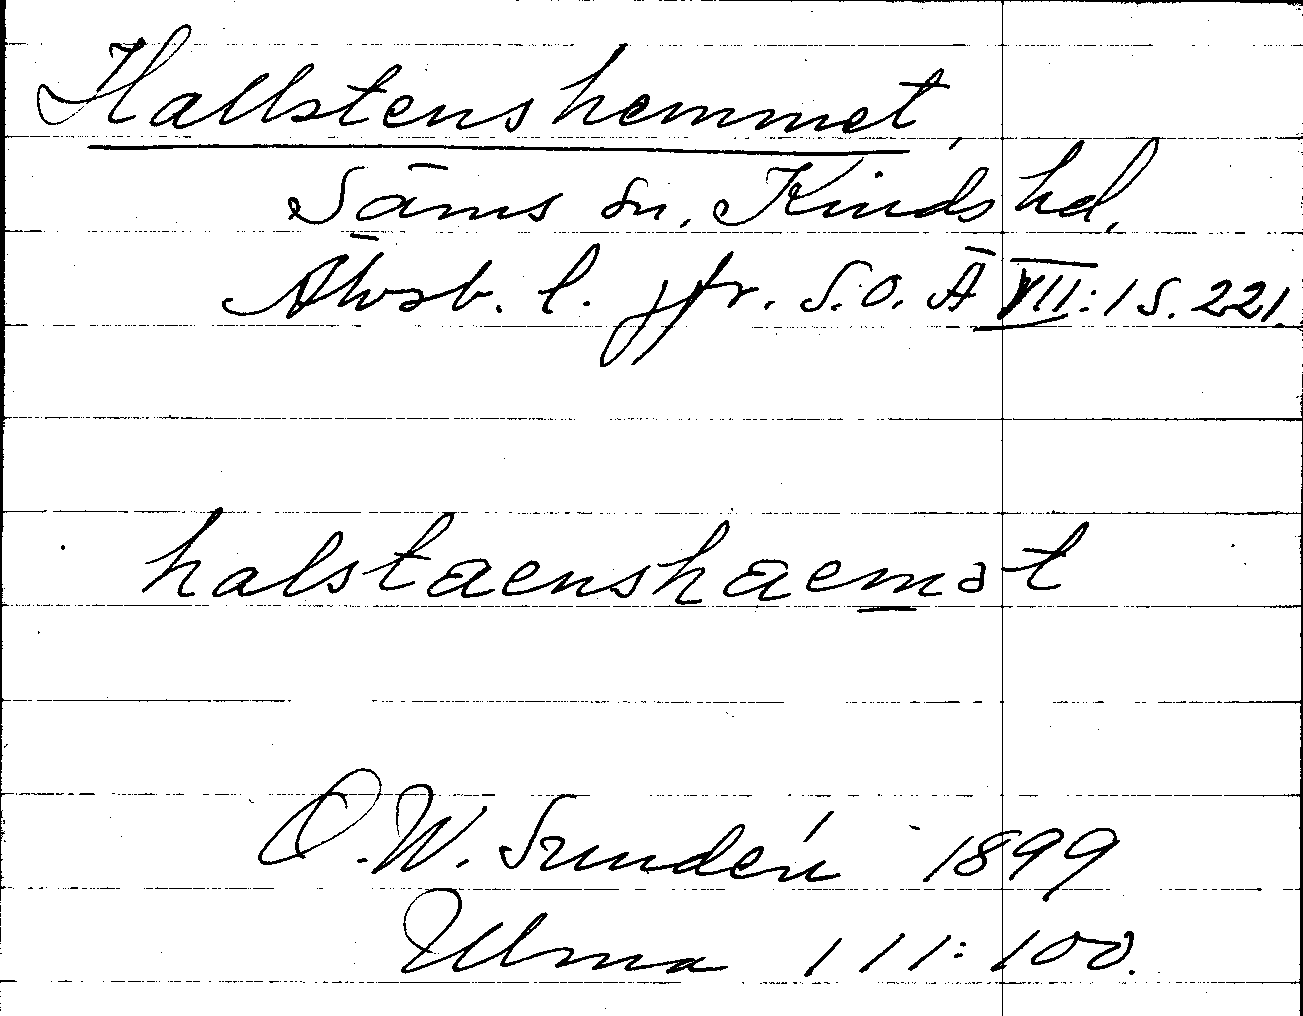 Hallstenshemmet,
Säms sn, Kinds hd,
Älvsb. l. jfr. S.O.Ä VII:1 S. 221.
halstaenshaemət
D.W. Sundén 1899
Ulma 111:100.